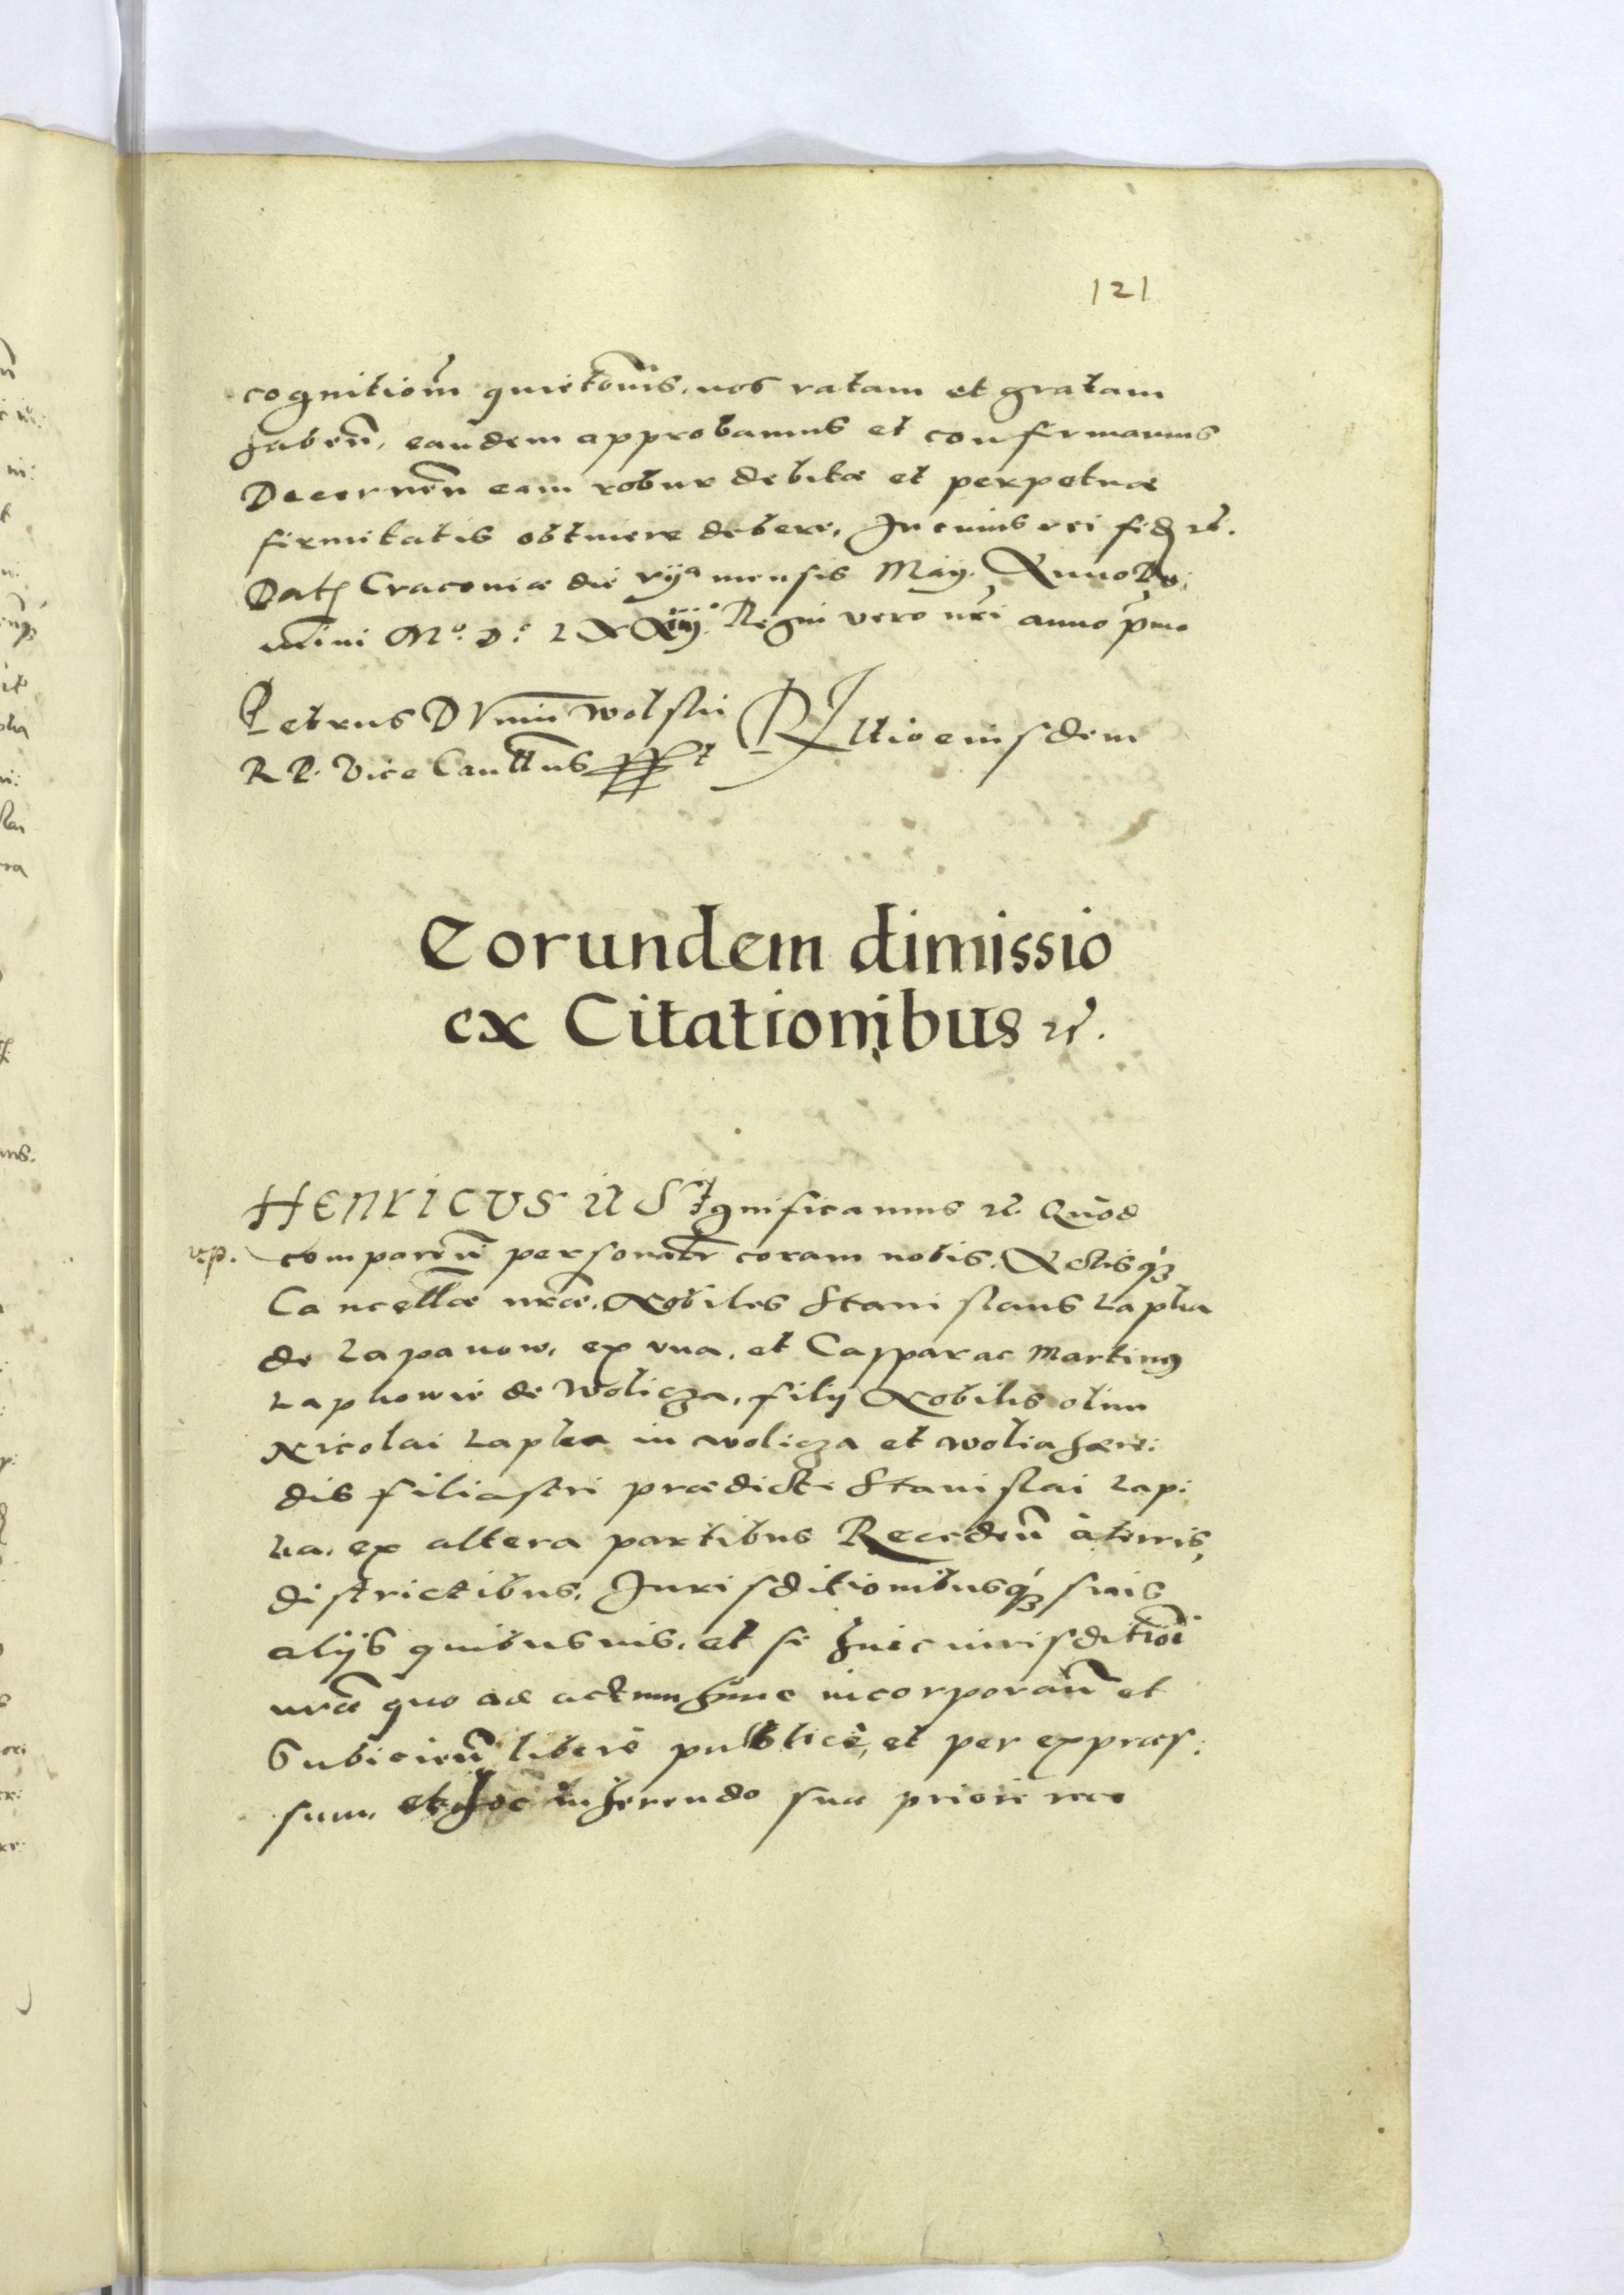 121
cognitiom̃ quietoñis, nos ratam et gratam
haben̄, eandem approbamus et confirmamus
Decernen̄ eam robur debitæ et perpetuæ
firmitatis obtinere debere, In cuius rei fidē etc.
Datē Cracoviæ die vijᵃ mensis Maij. Anno Do:
mini Mº. Dº. LXXiiijº. Regni vero nr̄i anno p̄mo
Petrus Dunin Wolski
RP. Vice Cancell̄us sst
R͞llio eiusdem
Eorundem dimissio
ex Citationibus etc.
HENRICUS etc Significamus etc. Quod
comparen̄ personalr̄ coram nobis, Actisq́ꝫ
Cancell̄æ nr̄æ, Nobiles Stanislaus Lapka
de Lapanow, ex una, et Caspar ac Martinꝰ
Lapkowie de Wolicza, filij Nobilis olim
Nicolai Lapka in Wolicza et Wolia hære:
dis filiastri prædicti Stanislai Lap:
ka, ex altera partibus Receden̄ à terris,
districtibus, Jurisditionibusq́ꝫ suis
alijs quibusvis, et se huic iurisditioñi
nr̄æ quo ad actum hunc incorporan̄ et
Subiicien̄ liberè publicè, et per expres:
sum, et hoc inherendo suæ priori reco